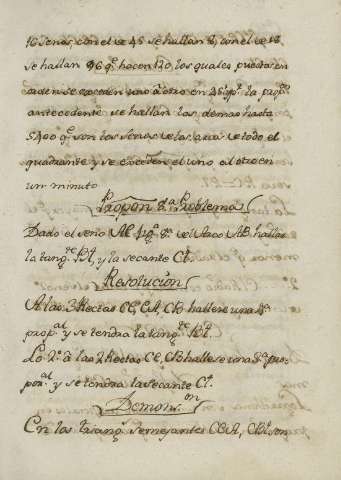 16 senos, con el de 45 se hallan 8, con el de 18
se hallan 96 q.e hacen 120, los quales puestos en
orden se exceden uno á otro en 45' y p.r la prop.n
antecedente se hallan los demas hasta
5400 q.e son los senos de los grad. de todo el
quadrante y se exceden el uno al otro en
un minuto
Propon 8.a Problema
Dado el seno AE del Arco AB hallar
la tang.te Bt, y la secante Ct.
Resolucion
A las 3 Rectas CE, EA, CB hallese una 4.a
prop.al y se tendra la tang.te Bt.
Lo 2.o á las 2 Rectas CE, CB hallese una 3.a pro-
por.al y se tendrá la secante Ct.
Demons.on
En los triang.s semejantes CEA, CBt son